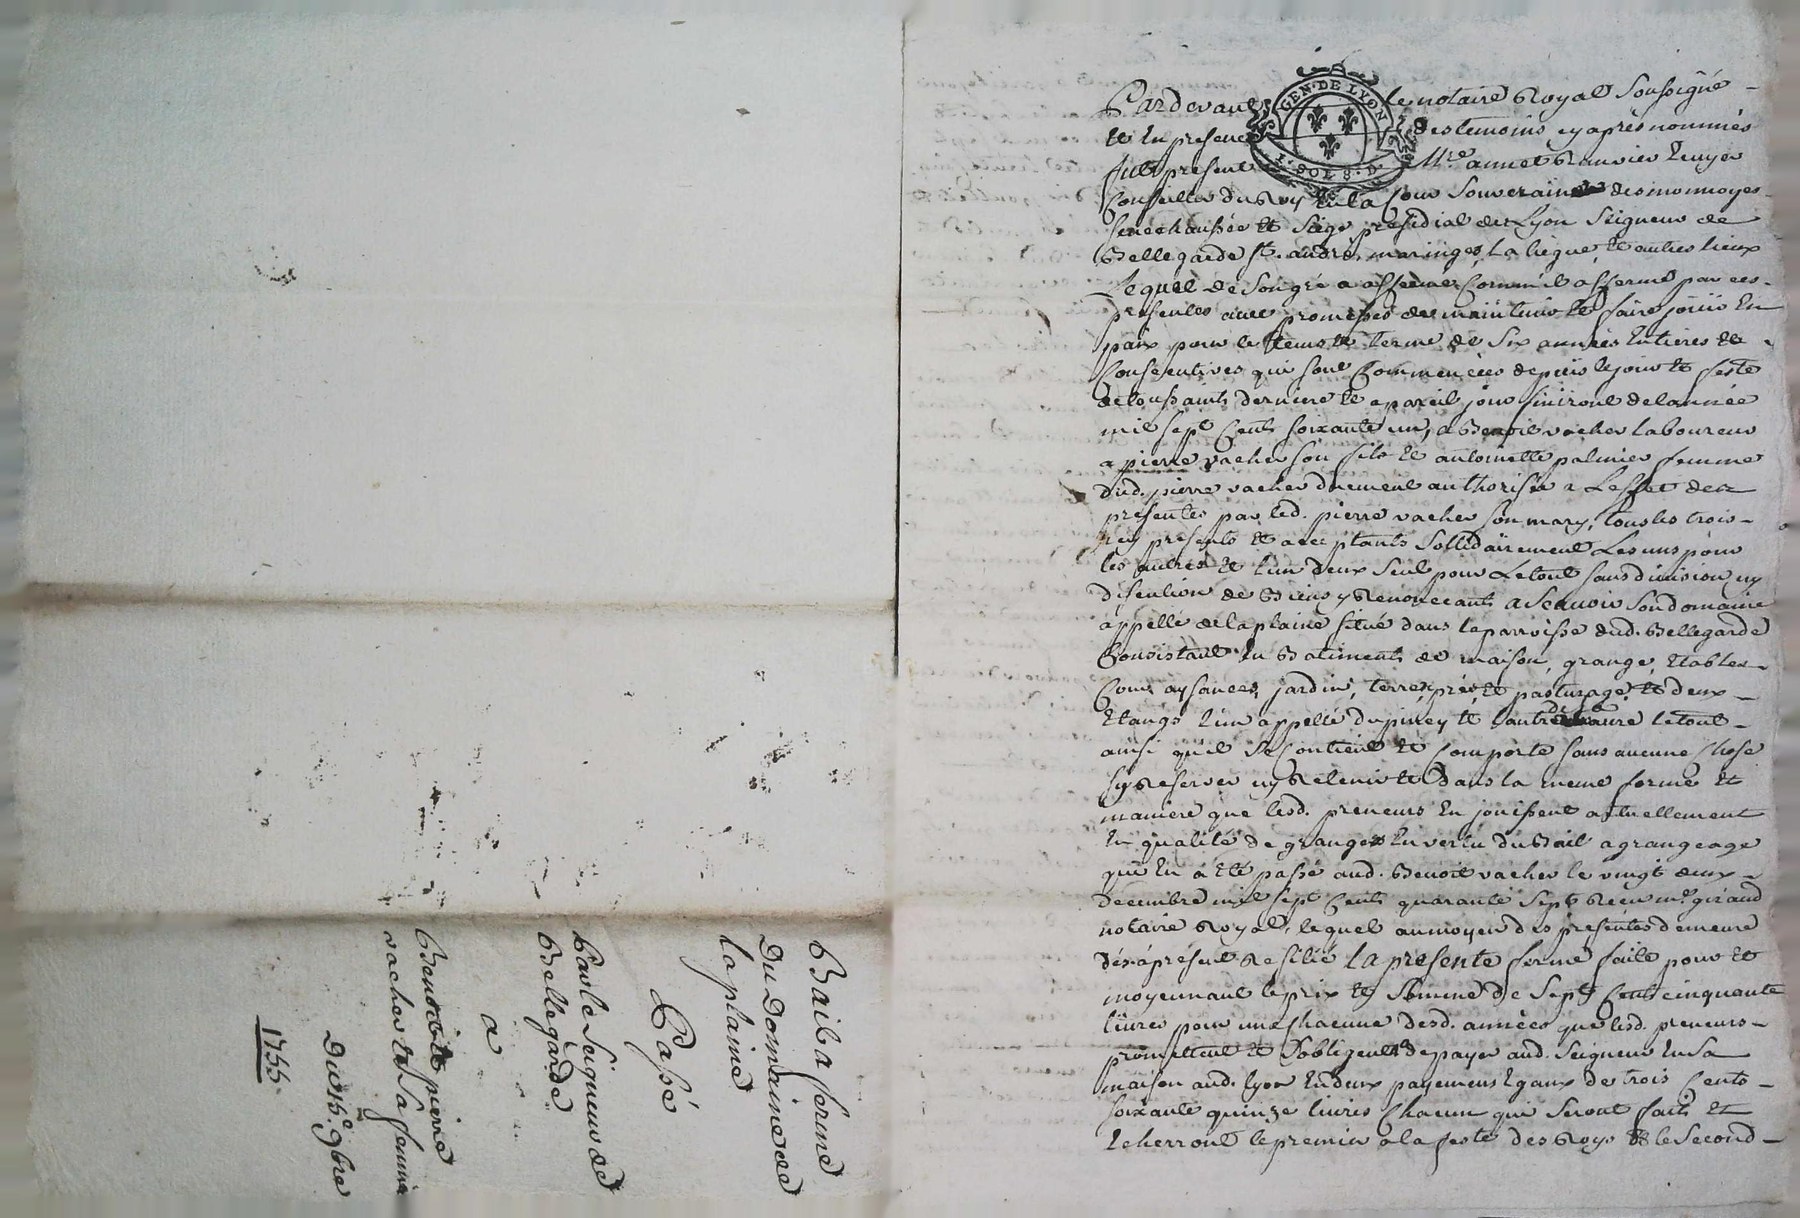 Bail a ferme
Du Domaine de
la plaine
Passé
par le Seigneur de
Bellegarde
a
Benoit et pierre
vacher et Sa femme
Du 15e. 9bre
1755.
GEN. DE LYON
1. SOL 8. D.
Pardevant le notaire Royal Soussigné
et En presence des temoins cy apres nommés
fut present Mre. annet Ranvier Ecuyer
Conseiller du Roy En la Cour Souveraine des monnoyes
senechaussée et Siege presidial de Lyon Seigneur de
Bellegarde St. andré, maringes, La liegue, et autres lieux
Lequel de Son gré a affermé Comme il afferme par ces
presentes avec promesses de maintenir et faire jouir En
paix pour le tems et terme de Six années Entieres et
Consecutives qui sont Commencées depuis le jour et feste
de toussaints derniere et a pareil jour finiront de lannée
mil sept Cents soixante un, a Benoit vacher laboureur
a pierre vacher son fils et antoinette palmier femme
dud. pierre vacher duement authorisée a Leffet des
presentes par led. pierre vacher son mary, tous les trois
icy presents et acceptants Sollidairement Les uns pour
les autres et lun deux Seul pour Letout sans division ny
discution de Biens y Renonceants a Scavoir Son domaine
appellé de la plaine situé dans la parroisse dud. Bellegarde
Consistant En Batiments de maison, grange, Etables
Cour, aysances, jardin, terres, prés et pasturage, et deux
Etangs lun appellé du piney et lautre letout
ainsi quil Se Contient et Comporte sans aucune Chose
sy Reserver ny Retenir et dans la meme forme et
maniere que lesd. preneurs En jouissent actuellement
En qualité de granger En vertu du Bail a grangeage
qui En a été passé aud. Benoit vacher le vingt deux
decembre mil sept Cents quarante Sept Receu me. giraud
notaire Royal, lequel au moyen des presentes demeure
dés apresent Resilié La presente ferme faite pour et
moyennant le prix et Somme de Sept Cent cinquante
livres pour une Chacune desd. années que lesd. preneurs
promettent et Sobligent de payer aud. Seigneur En Sa
maison aud. lyon En deux payemens Egaux de trois Cents
soixante quinze livres Chacun qui Seront faits et
Echerront le premier a la feste des Roys et le Second